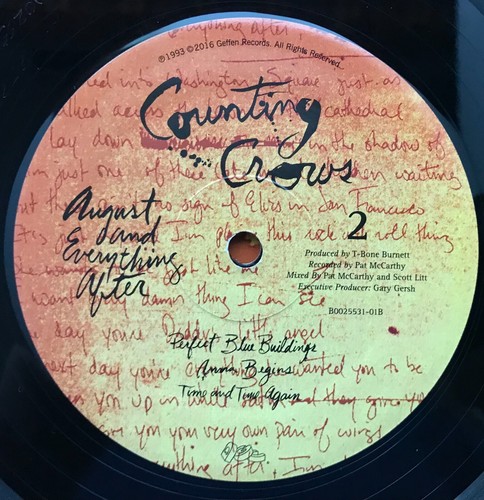 everything after,
℗1993 ©2016 Geffen Records. All Rights Reserved.
into Washington Square just as
walked across the cathedral
lay down in the shadow of
I'm just one of these waiting
out the sign of Elvis in San Francisco
I'm play this rock and roll thing
just like me
want any damn thing I can see
say you're Daddy's little angel
next day you're wanted you to be
you up in white and they give you
give you your very own pair of wings
everything after, I'm
Counting
Crows
August
and
Everything
After
2
Produced by T-Bone Burnett
Recorded by Pat McCarthy
Mixed By Pat McCarthy and Scott Litt
Executive Producer: Gary Gersh
B0025531-01B
Perfect Blue Buildings
Anna Begins
Time and Time Again